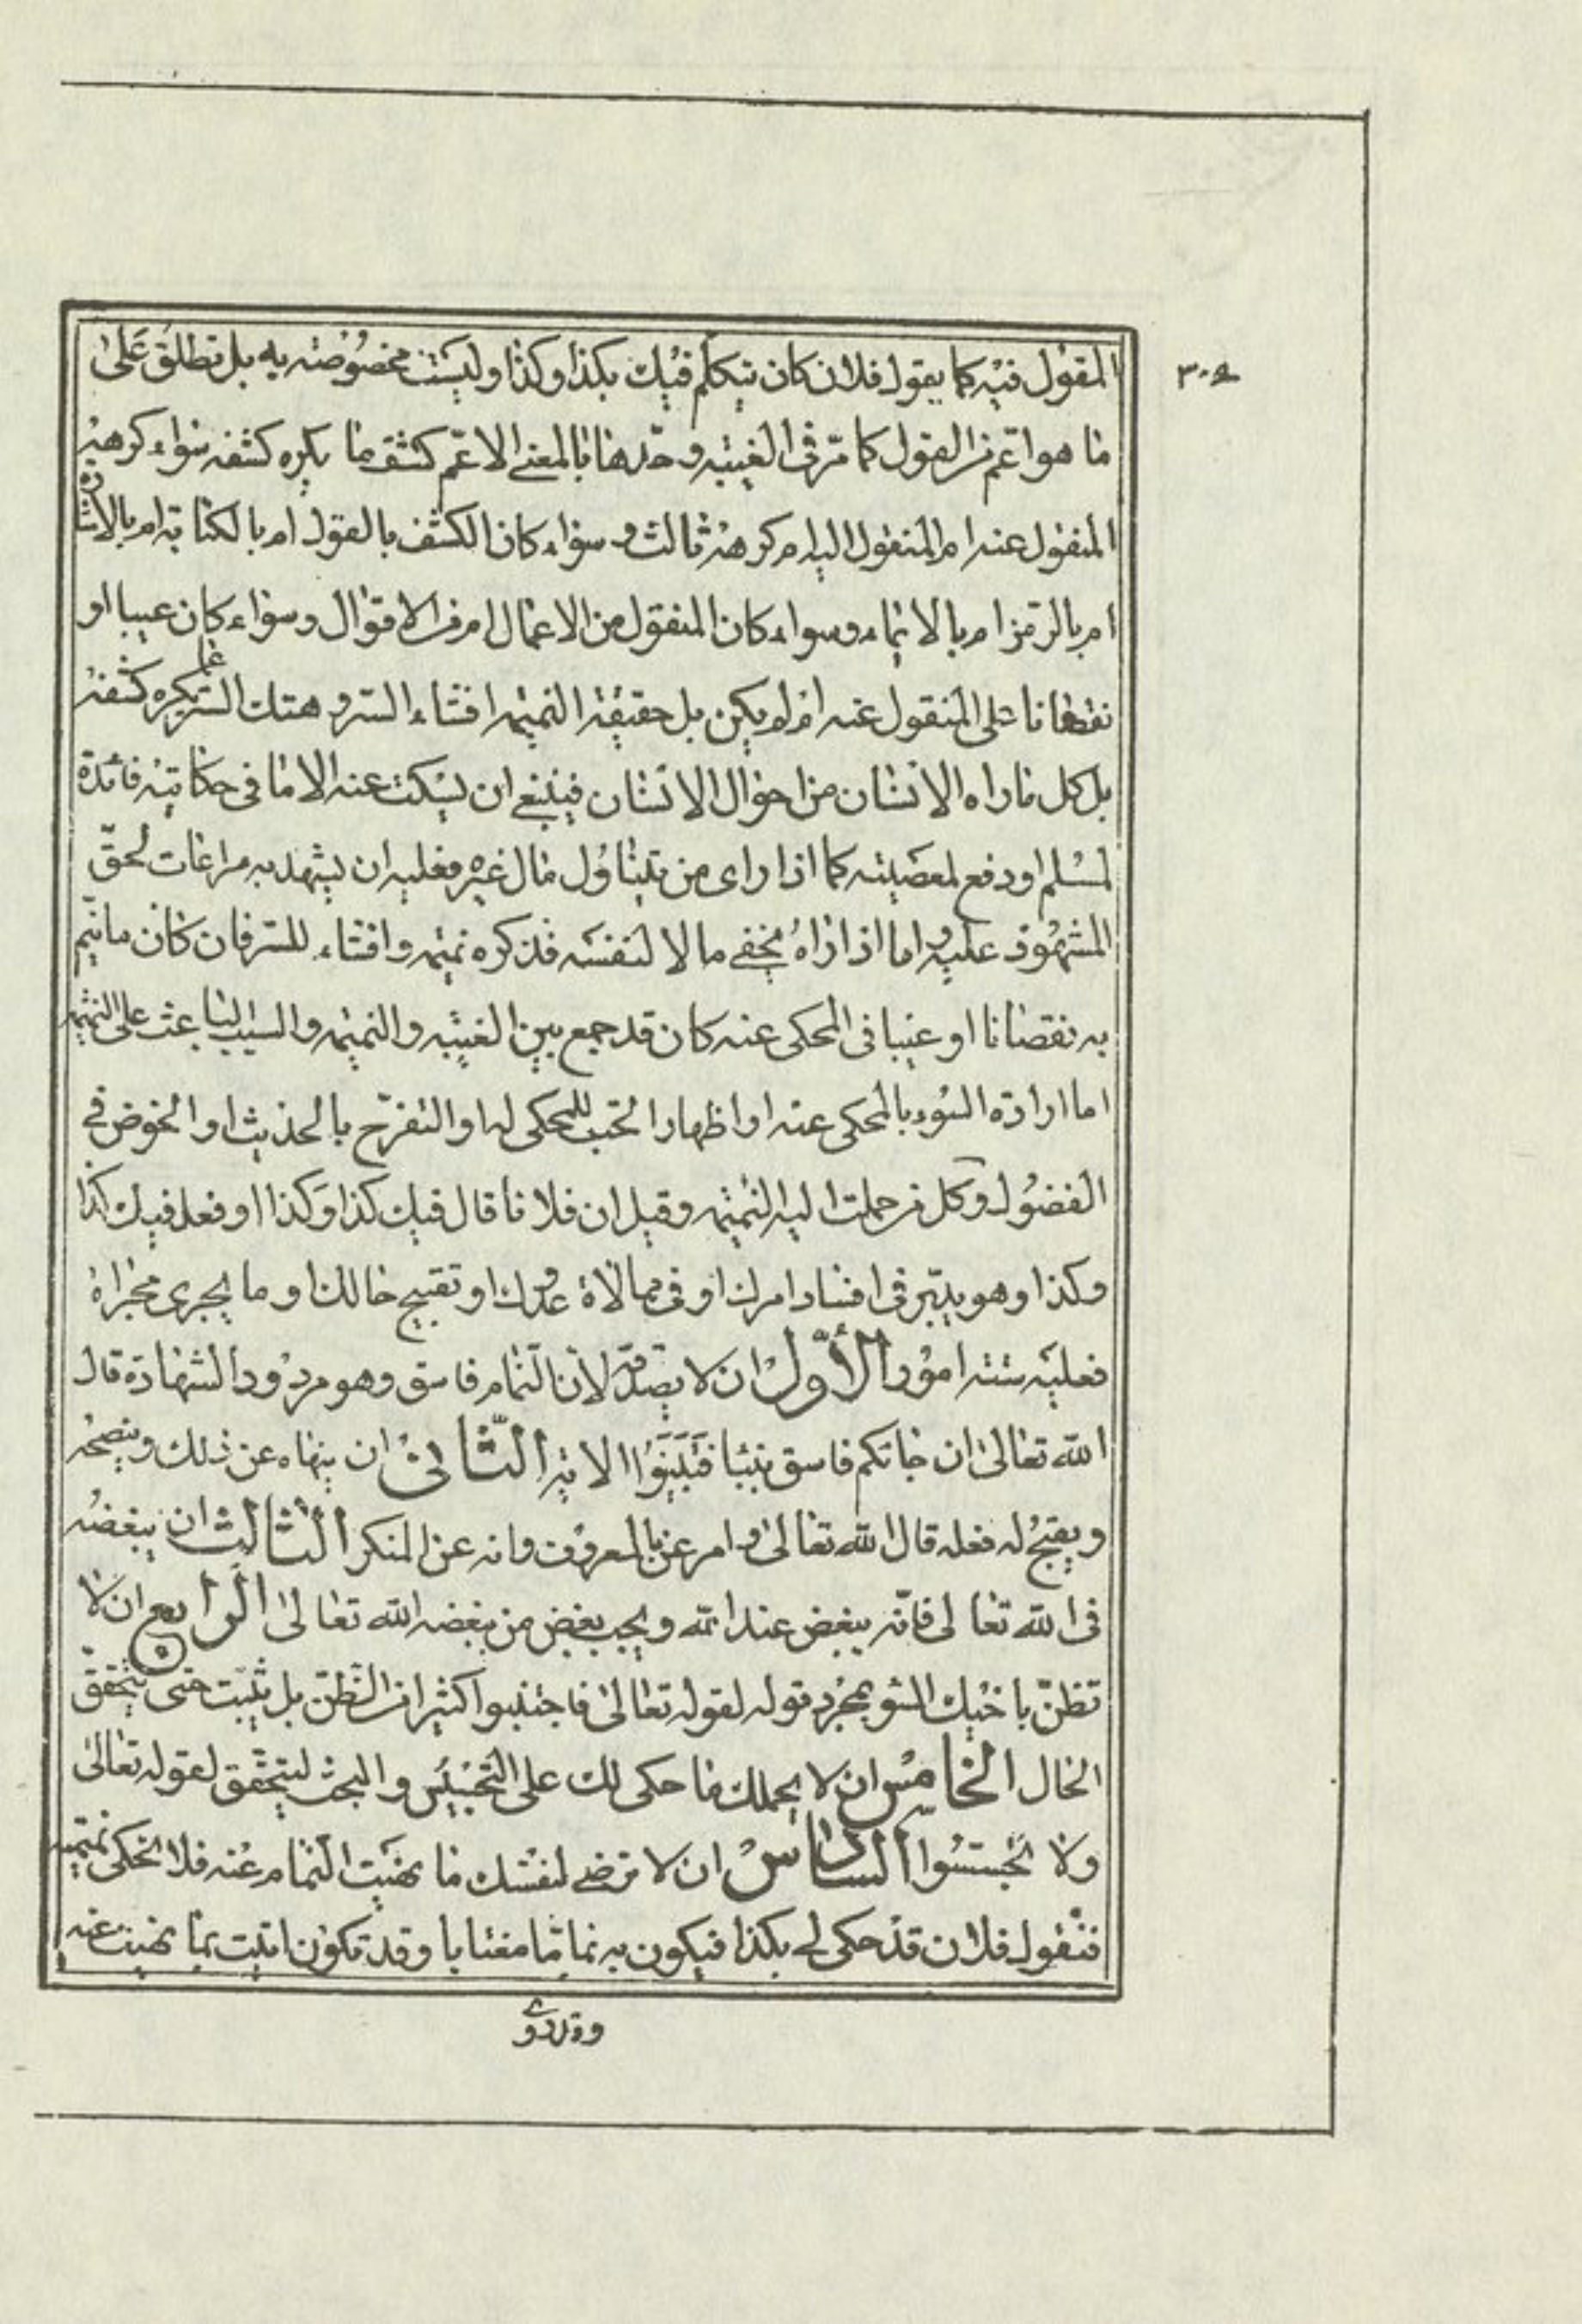 المقول فيه كما يقول فلان كان يتكلم فيك بكذا وكذا وليست مخصوصة به بل تطلق على
٣٠٤
ما هو اعم من القول كما مر في الغيبه وحدها بالمعنى الاعم كشف ما يكره كشفه سواء كرهه
المنقول عنه ام المنقول اليه ام كرهه ثالث وسواء كان الكشف بالقول ام بالكتابة ام بالاشارة
ام بالرمز ام بالايماء وسواء كان المنقول من الاعمال ام من الاقوال وسواء كان عيبا او
نقصانا على المنقول عنه ام لم يكن بل حقيقة النميمه افشاء السر وهتك الستر عما يكره كشفه
بل كل ما راه الانسان من احوال الانسان فينبغي ان يسكت عنه الا ما في حكايته فائدة
لمسلم او دفع لمعصيته كما اذا راى من يتناول مال غيره فعليه ان يشهد به مراعات لحق
المشهود عليه واما اذا راه يخفى مالا لنفسه فذكره نميمه وافشاء للسر فان كان ما ينم
به نقصانا او عيبا في المحكى عنه كان قد جمع بين الغيبه والنميمه والسبب الباعث على النميمه
اما ارادة السوء بالمحكى عنه او اظهار الحب للمحكى له او التفرح بالحديث او الخوض في
الفضول وكل من حملت اليه النميمه وقيل ان فلانا قال فيك كذا وكذا او فعل فيك كذا
وكذا وهو يدبر في افساد امرك او في ممالاة عدوك او تقبيح حالك او ما يجرى مجراه
فعليه ستة امور الأول ان لا يصدقه لان النمام فاسق وهو مردود الشهادة قال
الله تعالى ان جاءكم فاسق بنبا فتبينوا الاية الثاني ان ينهاه عن ذلك وينصحه
ويقبح له فعله قال الله تعالى وامر بالمعروف وانه عن المنكر الثالث ان يبغضه
في الله تعالى فانه بغيض عند الله ويجب بغض من يبغضه الله تعالى الرابع ان لا
تظن باخيك السوء بمجرد قوله لقوله تعالى فاجتنبوا كثيرا من الظن بل تثبت حتى يتحقق
الحال الخامس ان لا يحملك ما حكى لك على التجسس والبحث ليتحقق لقوله تعالى
ولا تجسسوا السادس ان لا ترضى لنفسك ما نهيت النمام عنه فلا تحكى نميمته
فتقول فلان قد حكى لي بكذا فيكون به نماما مغتابا وقد تكون اتيت بما نهيت عنه
وقد روى